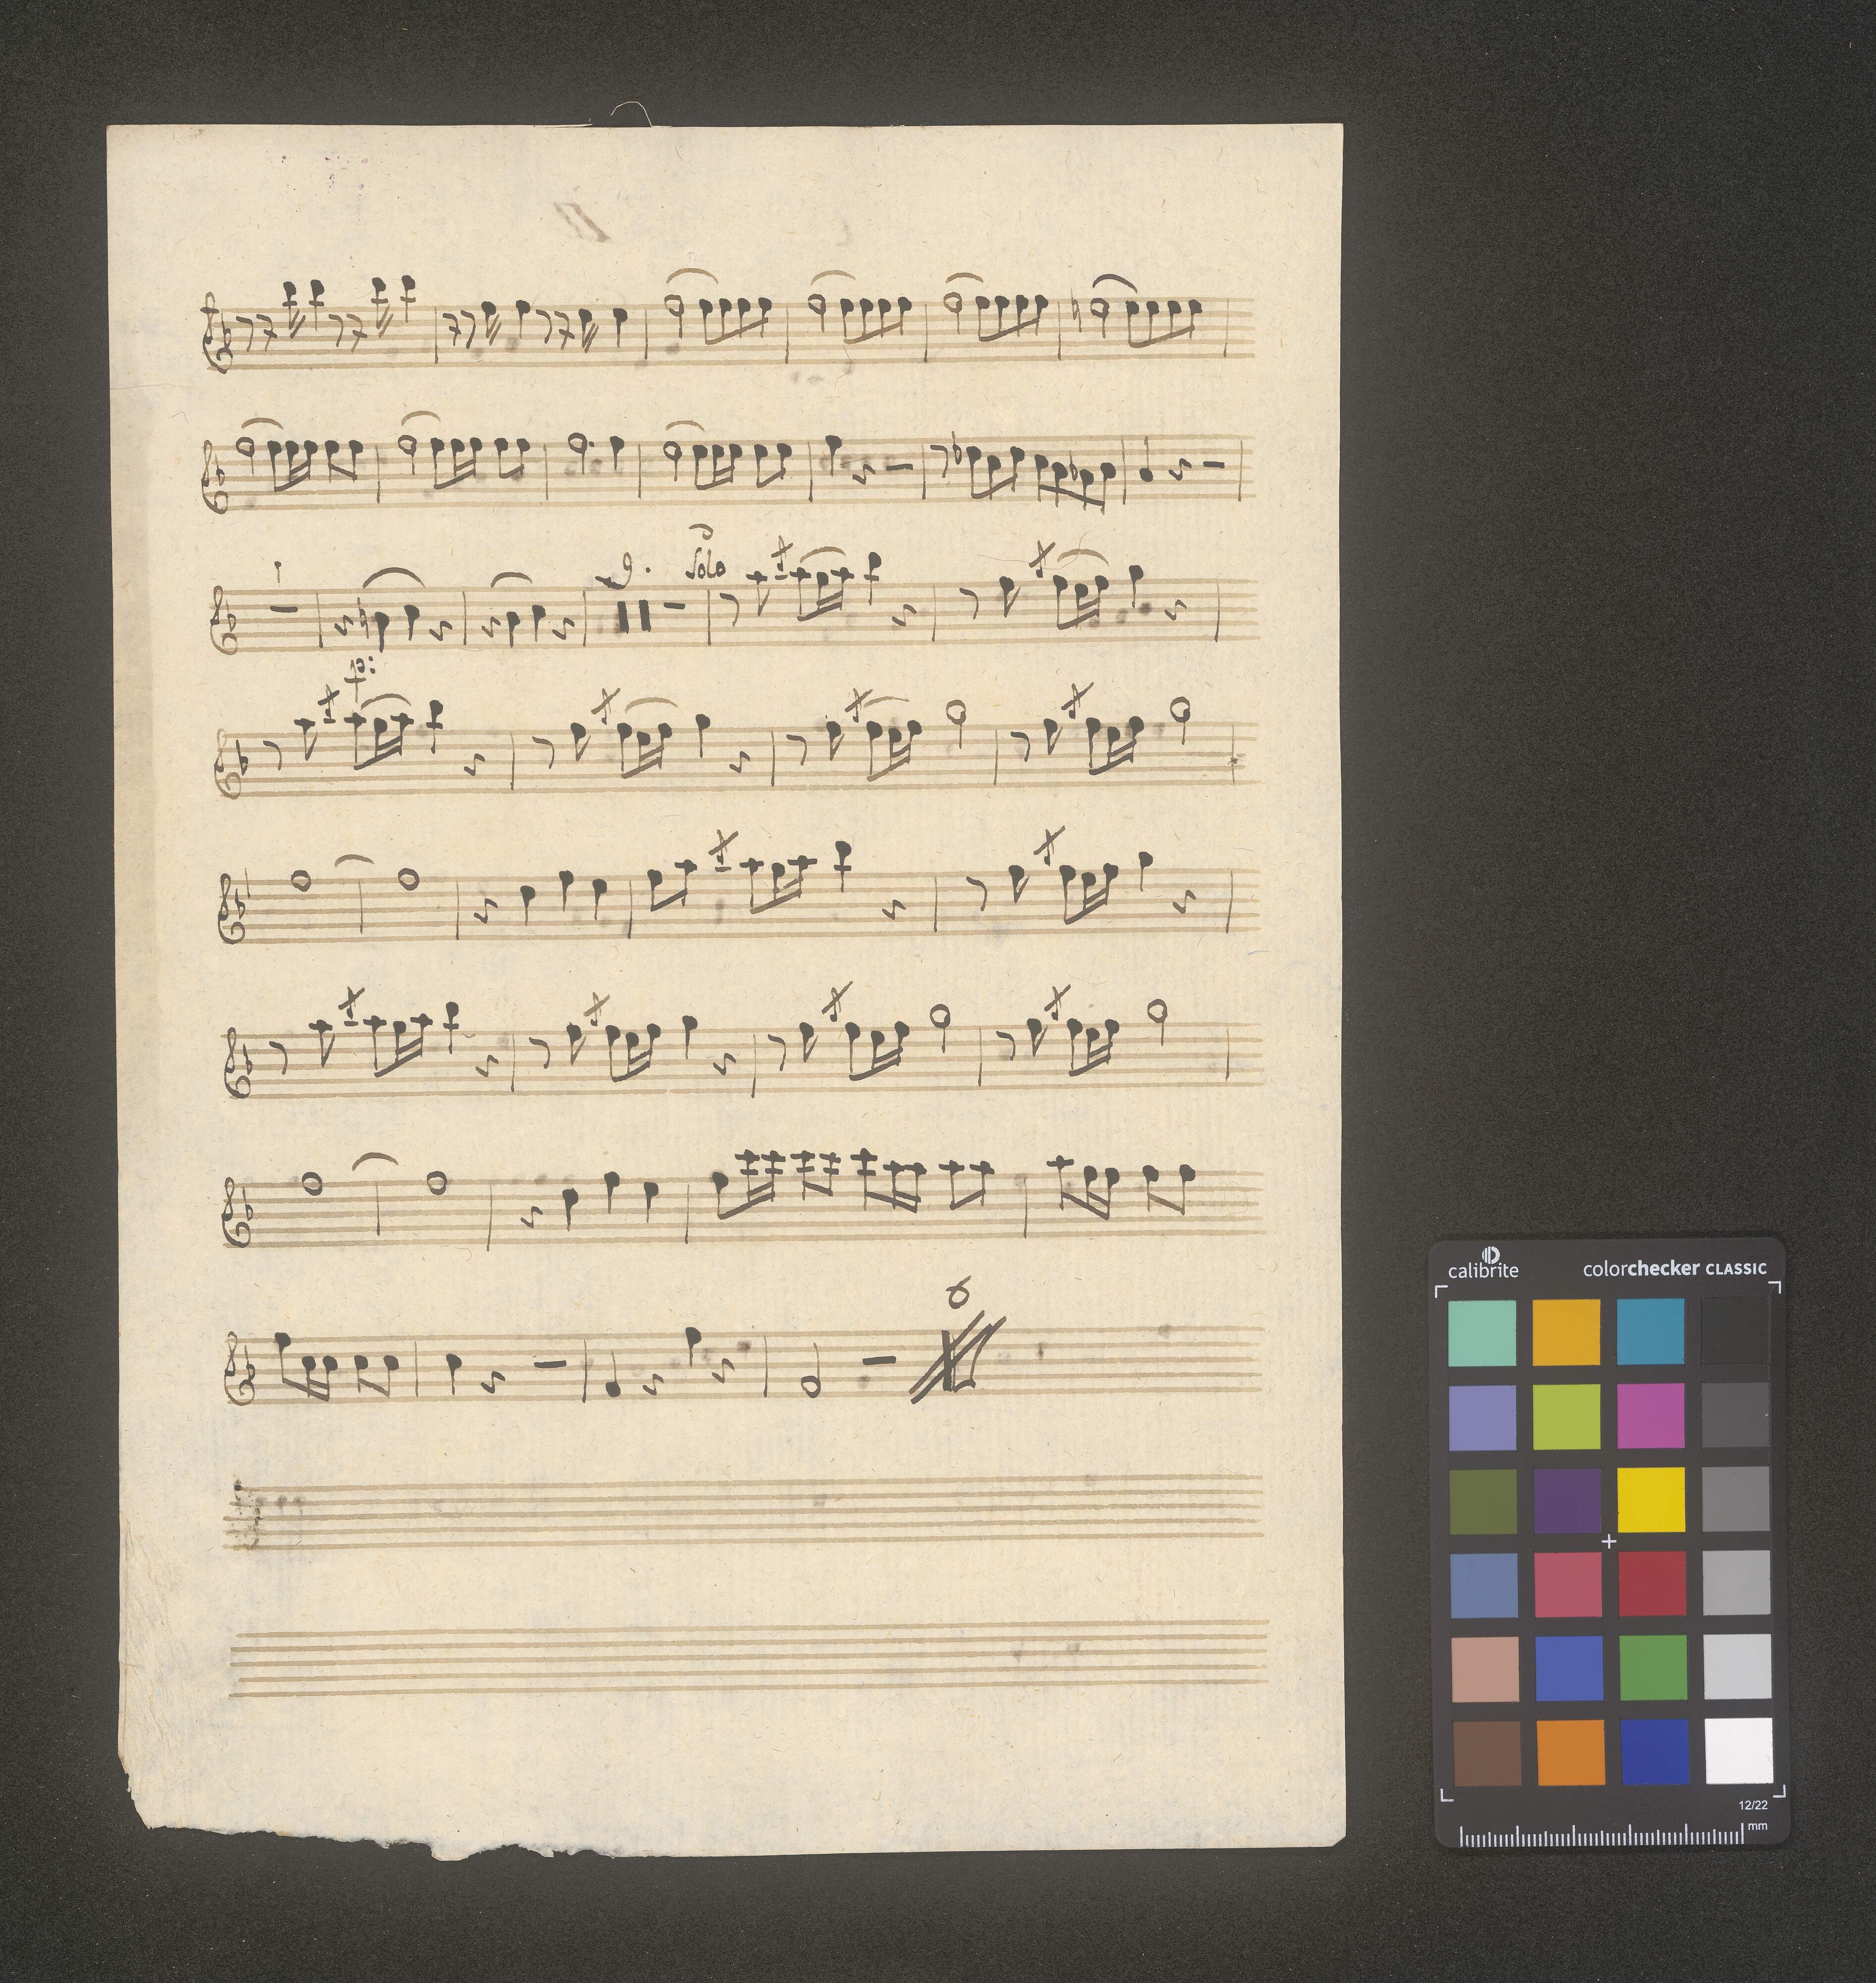 1
9.
Solo
p:
calibrite
colorchecker CLASSIC
12/22
mm